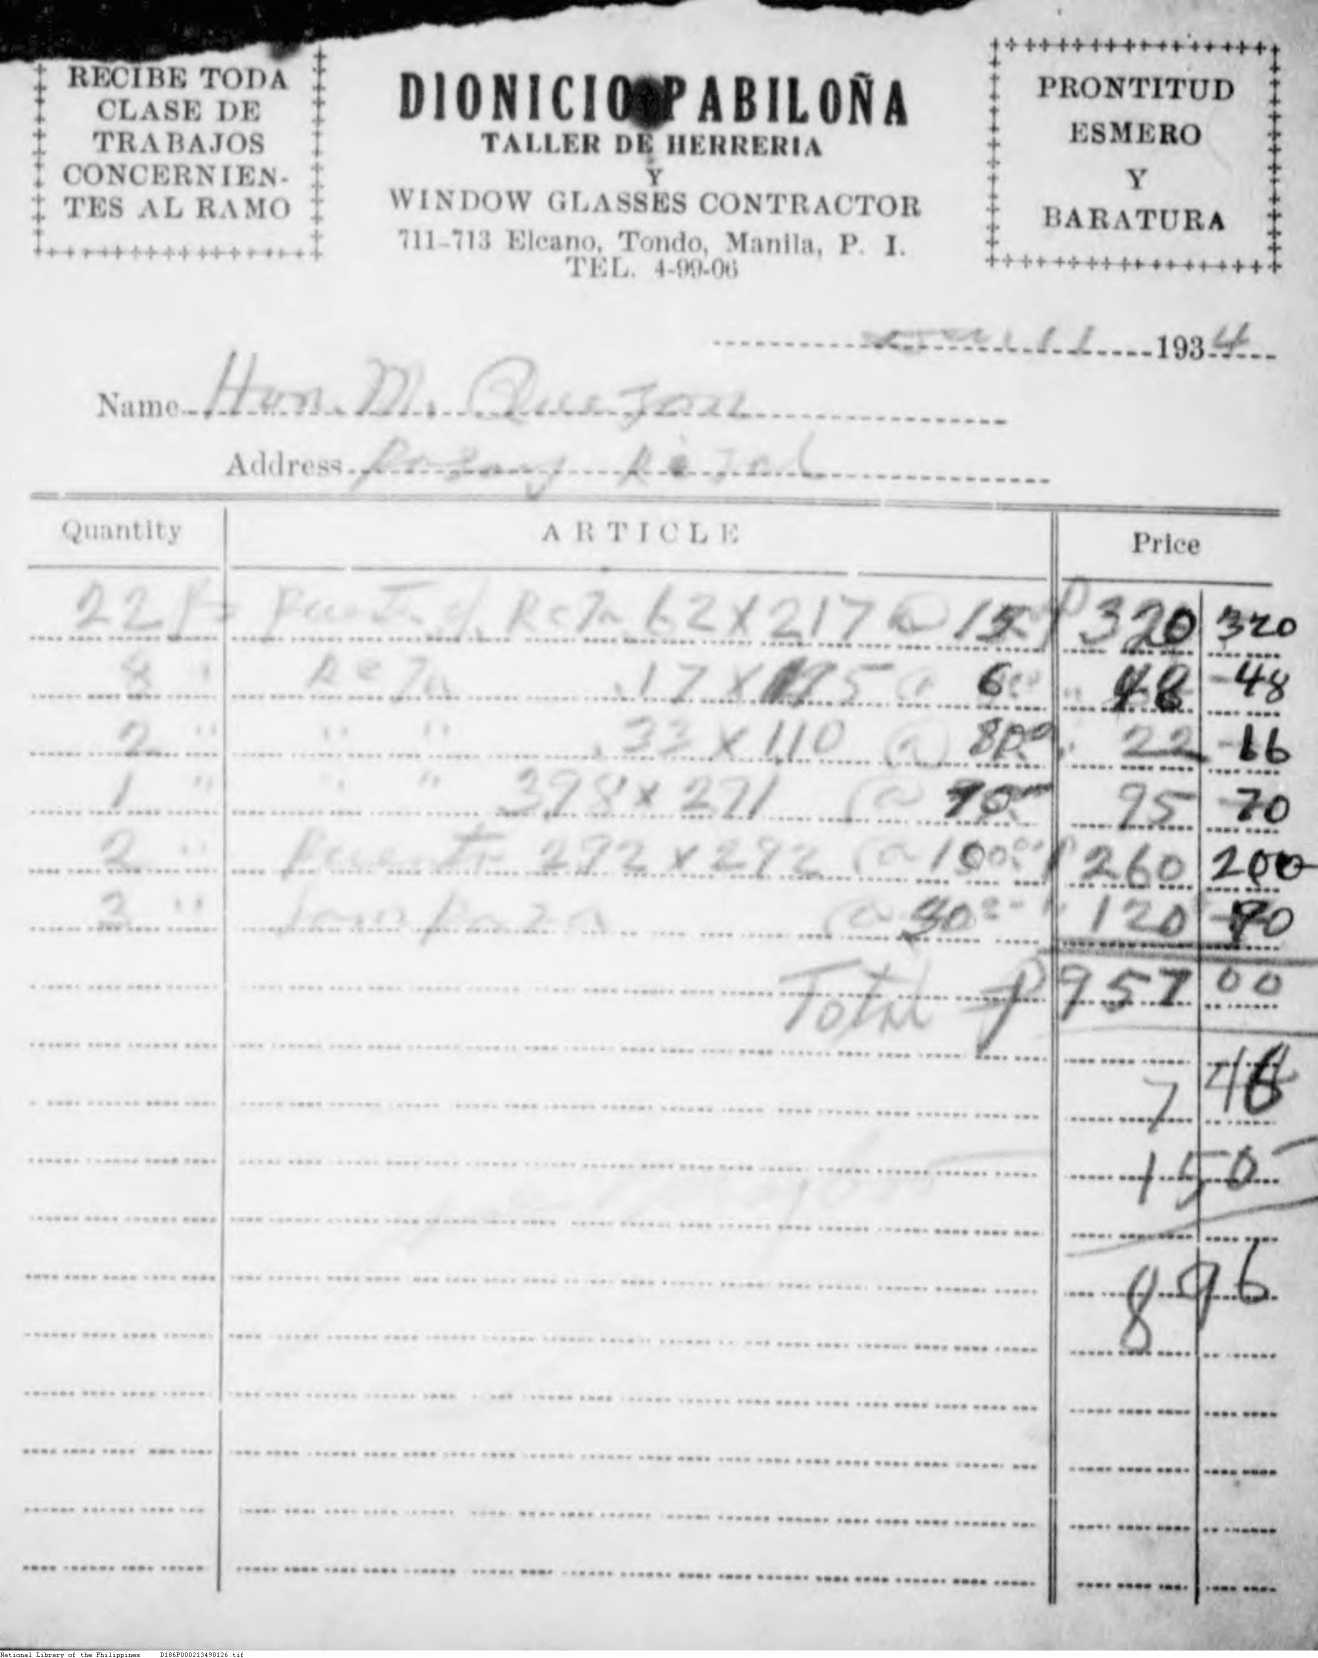 RECIBE TODA
CLASE DE
TRABAJOS
CONCERNIEN-
TES AL RAMO
DIONICIO PABILOÑA
TALLER DE HERRERIA
Y
WINDOW GLASSES CONTRACTOR
711-713 Elcano, Tondo, Manila, P. I.
TEL. 4-99-06
PRONTITUD
ESMERO
Y
BARATURA
11 1934
Name Hon. M. Quezon
Address Pasay Rizal
Quantity ARTICLE Price
22 Reja 62 X 217 @ 15 320 320
8 " Reja 17 X 195 @ 6 48 48
2 " " " 33 X 110 @ 8 22 16
1 " " " 398 x 271 @ 70 95 70
2 " 292 x 292 @ 100 260 200
3 " @ 30 120 90
Total P 957 00
7 46
150
896
National Library of the Philippines D186P000213498126.tif